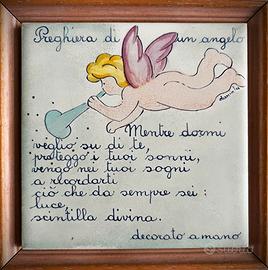 Preghiera di un angelo
Mentre dormi
veglio su di te,
proteggo i tuoi sonni,
vengo nei tuoi sogni
a ricordarti
ciò che da sempre sei:
luce,
scintilla divina.
decorato a mano
subito